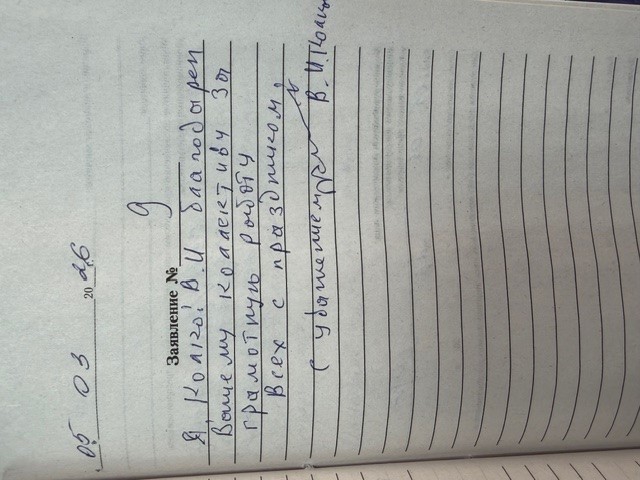 05 03 2026
Заявление № 9
Я, В.И благодарен
Вашему коллективу за
грамотную работу
Всех с праздником,
С уважением В.И.